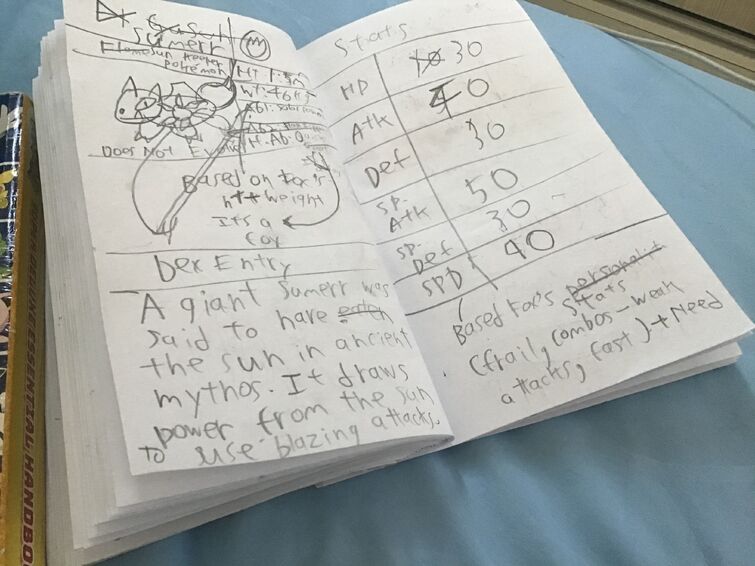 Sumerr
Flamesun Keeper
Pokémon
Ht: 1.5m
Wt: 46
Abl: Solar Power
H. Ab:
Does Not Evolve
Based on Fox's
ht + weight
Its a
fox
Dex Entry
A giant Sumerr was
said to have
the sun in ancient
mythos. It draws
power from the sun
to use blazing attacks.
Stats
HP 30
Atk 40
Def 30
Sp. Atk 50
Sp. Def 30
SPD 40
Based Fox's
Stats
(frail, combos-weak
attacks, fast) + Need
SUPER DELUXE ESSENTIAL HANDBO